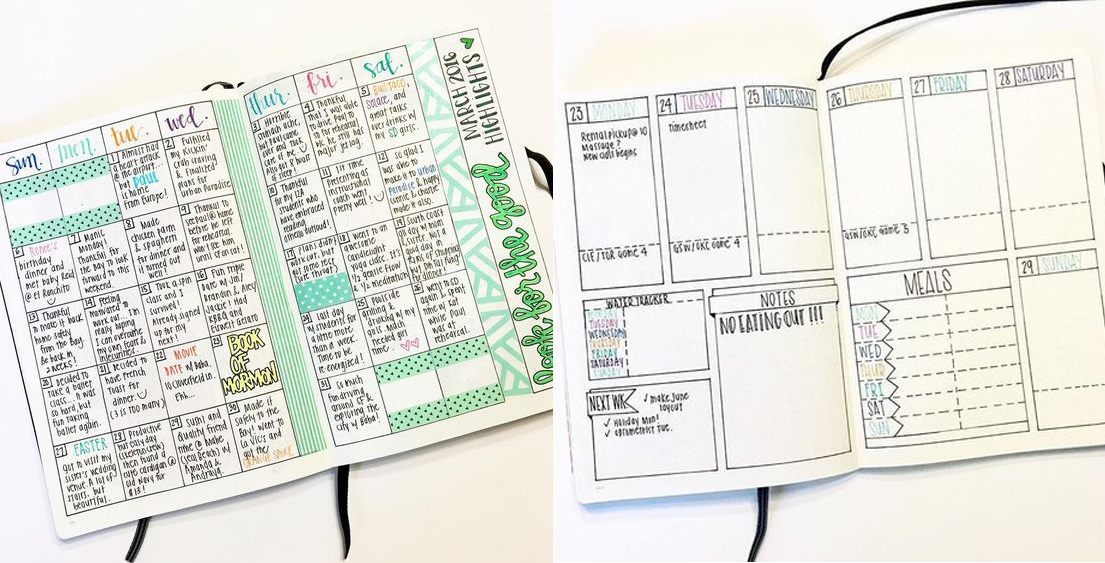 sun. mon. tue. wed. thur. fri. sat.
MARCH 2016
HIGHLIGHTS
look for the good
1 Almost had
a heart attack
@ the airport...
but PAUL
is home
from Europe!
2 Fulfilled
my kickin'
crab craving
& finalized
plans for
urban Paradise
3 Horrible
stomach ache,
but Paul came
over and took
care of me
Also got 8 hours
of sleep!
4 Thankful
that I was able
to drive Paul to
SD for rehearsal
bc he still has
major jetlag.
5 BULL TACO,
SOLACE, and
great talks
over drinks w/
my SD girls.
6 Renee's
birthday
dinner and
met baby Reid
@ El Ranchito
7 Manic
Monday!
Thankful for
the Bay to look
forward to this
weekend.
8 Made
chicken parm
& spaghetti
for dinner and
it turned out
well!
9 Thankful to
see Paul @ home
before he left
for rehearsal.
Won't see him
until
10 Thankful
for my
students who
have embraced
reading
11 1st time
presenting as
instructional
coach went
pretty well!
12 so glad I
was able to
make it to urban
Paradise & happy
Connie & Charlie
made it also.
13 Thankful
to make it back
home safely
from the Bay.
Be back in
2 weeks!
14 Feeling
motivated to
work out... I'm
really hoping
I can overcome
my own fears &
insecurities.
15 Took a spin
class and I
survived!
Already signed
up for my
next!
16 Fun triple
Date w/ Jim,
Brandon & Alex,
Jackie! Had
KBBQ and
Sweet Gelato
17 Plans didn't
work out, but
got some rest
18 went to an
awesome
candlelight
yoga class. It's
1/2 gentle flow
1/2 meditation.
19 South Coast
all day w/ mom
20 Decided to
take a ballet
class... It was
so hard, but
fun taking
ballet again.
21 Decided to
have French
Toast for
dinner.
(3 is too many)
22 MOVIE
DATE w/ Baba.
10 Cloverfield Ln.
Ehh...
23 BOOK
OF
MORMON
24 Last day
w/ students for
a little more
than a week.
Time to be
re-energized!
25 Poolside
grilling &
drinking w/ my
Much
needed girl
time.
26 went to SD
again. I spent
time w/ Kim
while Paul
was at
rehearsal.
27 EASTER
Got to visit my
sister's wedding
venue. A lot of
stairs, but
beautiful.
28 Productive
but easy day
then found a
cute cardigan @
Old Navy for
$13!
29 Sushi and
Quality friend
time @ Mahe
(Seal Beach) w/
Amanda &
Andrew.
30 Made it
safely to the
Bay! Went to
La Vics and
got the
ORANGE SAUCE
31 So much
fun driving
around SF &
exploring the
city w/ Baba!
23 MONDAY
Rental pickup @ 10
Massage?
New calls begins
CLE/TOR GAME 4
24 TUESDAY
timesheet
GSW/OKC GAME 4
25 WEDNESDAY
26 THURSDAY
GSW/OKC GAME 5
27 FRIDAY
28 SATURDAY
29 SUNDAY
WATER TRACKER
MONDAY
TUESDAY
WEDNESDAY
THURSDAY
FRIDAY
SATURDAY
SUNDAY
NEXT WK
✓ make June
layout
✓ Holiday Mon!
✓ optometrist tue.
NOTES
NO EATING OUT !!!
MEALS
MON
TUE
WED
THUR
FRI
SAT
SUN